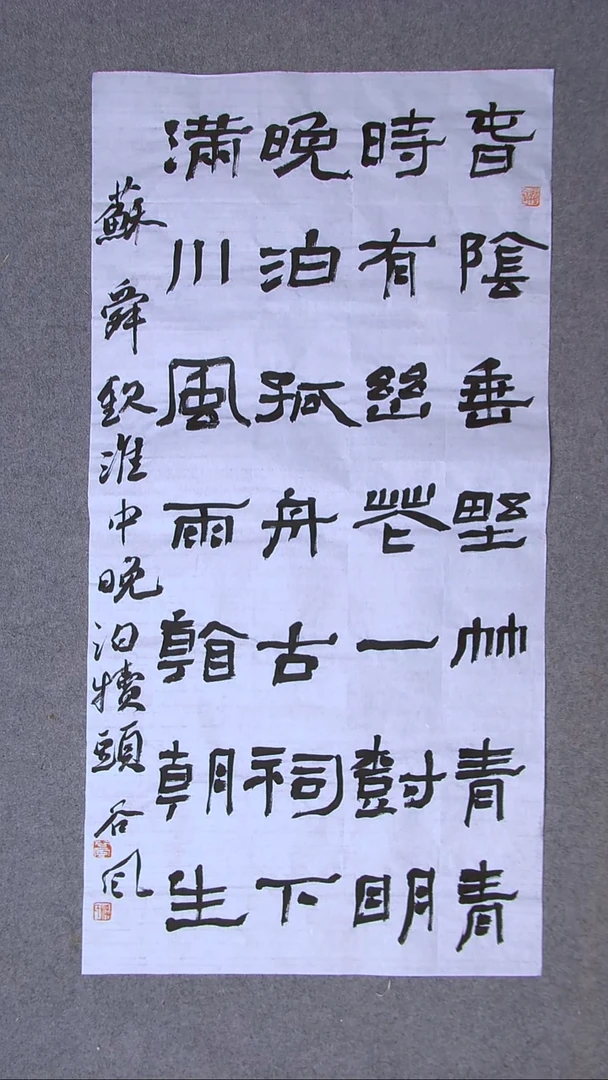 旾陰垂野艸青青
時有幽花一樹明
晚泊孤舟古祠下
滿川風雨看朝生
蘇舜欽淮中晚泊犢頭 谷風